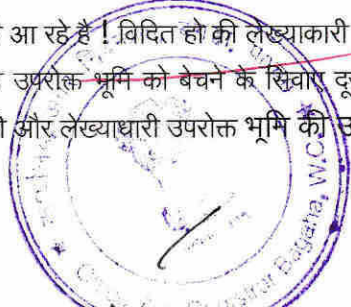 आ रहे है ! विदित हो की लेख्याकारी
उपरोक्त भूमि को बेचने के सिवाए दू
और लेख्याधारी उपरोक्त भूमि की उ
Registrar Bagaha, W.C.